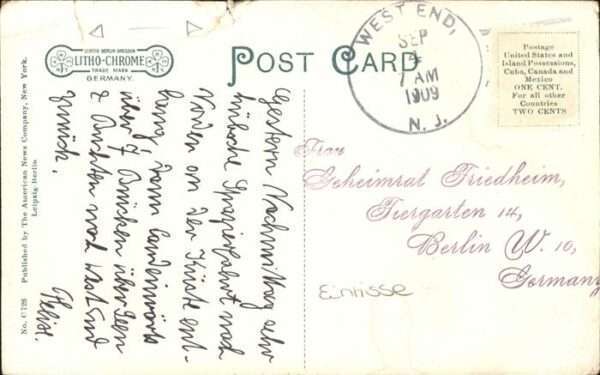 LEIPZIG BERLIN DRESDEN
LITHO-CHROME
TRADE MARK
GERMANY.
POST CARD
WEST END,
SEP
4
7 AM
1909
N. J.
Postage
United States and
Island Possessions,
Cuba, Canada and
Mexico
ONE CENT.
For all other
Countries
TWO CENTS
No. Published by The American News Company, New York.
Leipzig-Berlin.
Gestern Nachmittag sehr
hübsche Spazierfahrt nach
Norden an der Küste ent-
lang, dann landeinwärts
über 7 Brücken über den
& nach West End
zurück.
Frau
Geheimrat Friedheim,
Tiergarten 14,
Berlin W. 10,
Germany
Einrisse